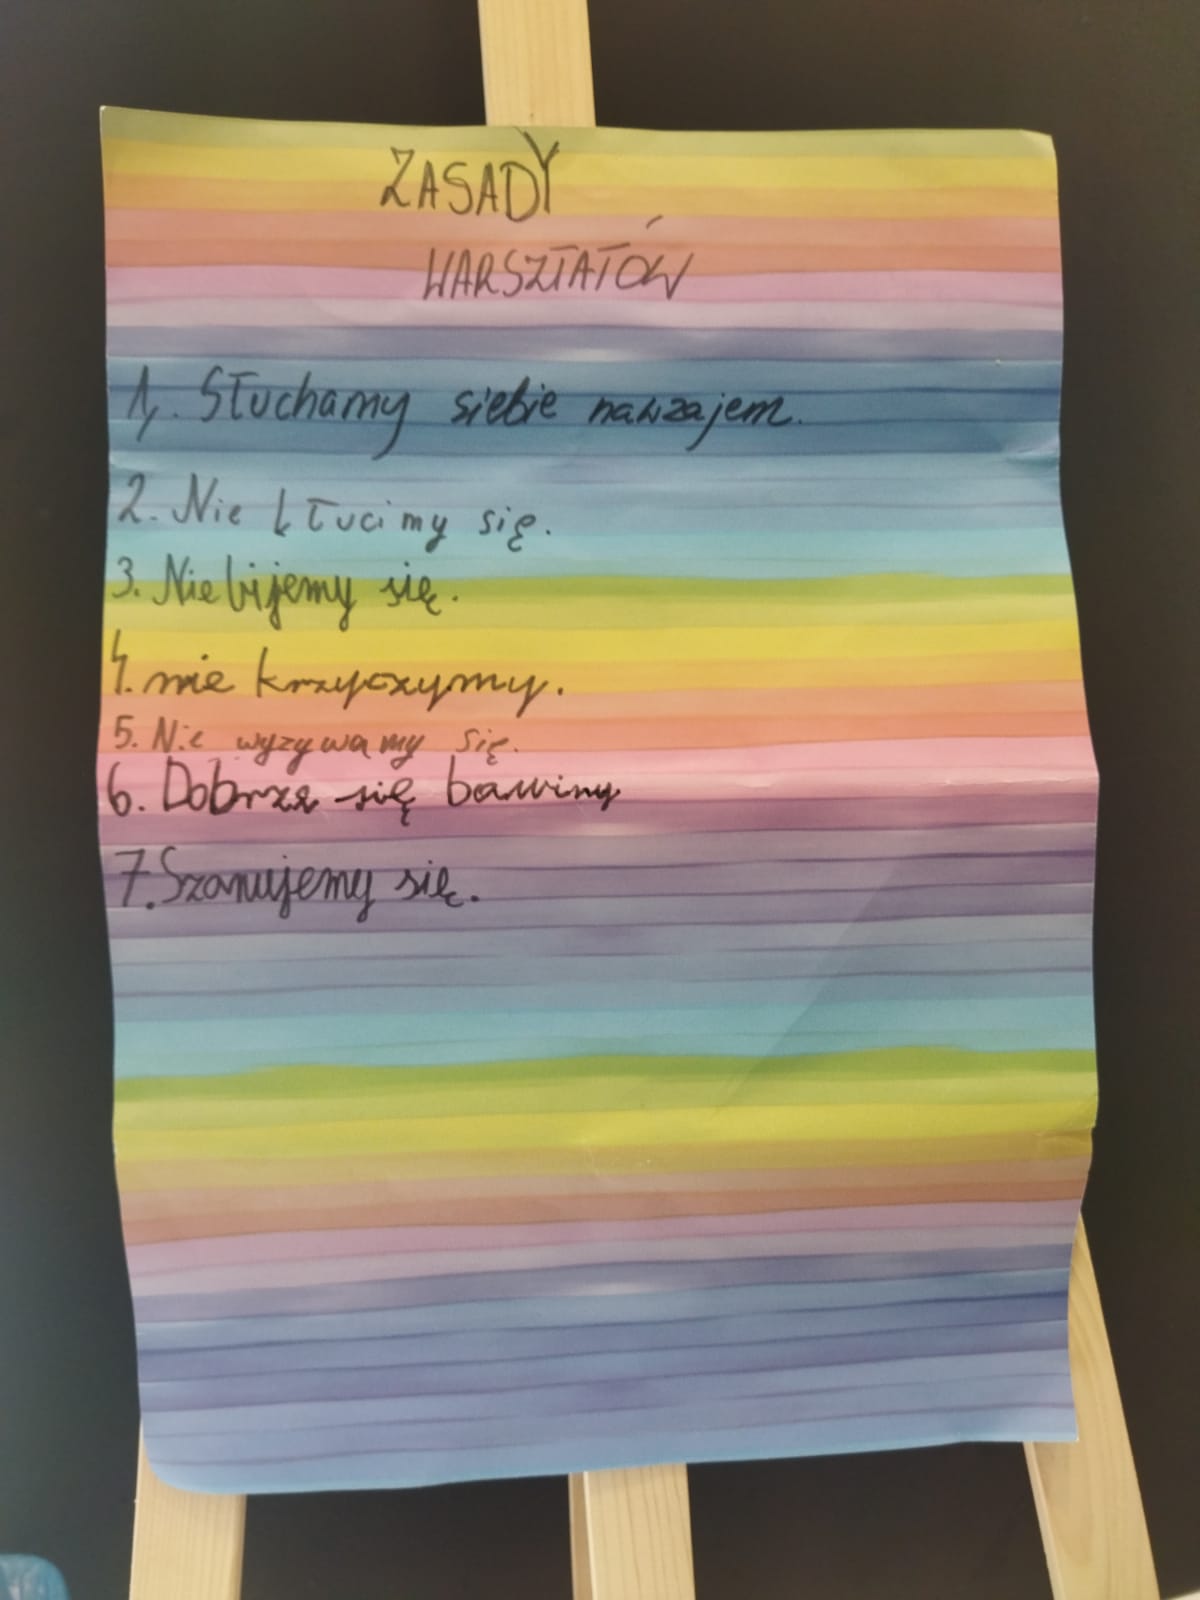 ZASADY
WARSZTATÓW
1. Słuchamy siebie nawzajem.
2. Nie kłucimy się.
3. Nie bijemy się.
4. nie krzyczymy.
5. Nie wyzywamy się.
6. Dobrze się bawimy
7. Szanujemy się.